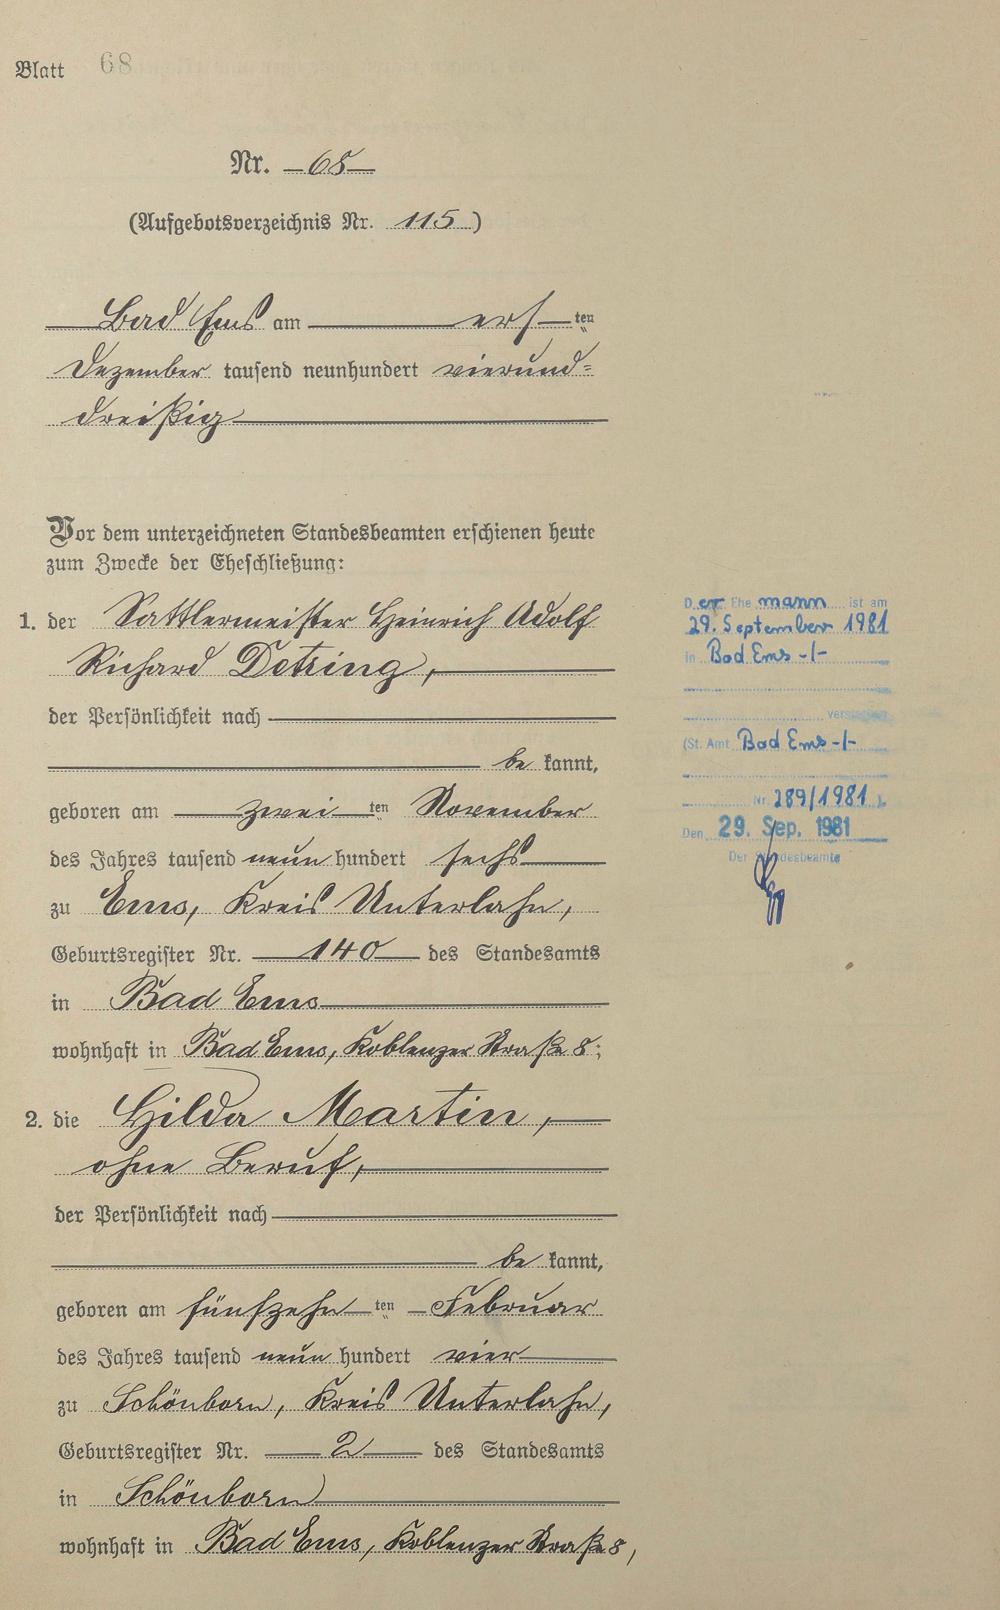 Blatt 68
Nr. 68
(Aufgebotsverzeichnis Nr. 115)
Bad Ems am ers ten
Dezember tausend neunhundert vierund=
dreißig
Vor dem unterzeichneten Standesbeamten erschienen heute
zum Zwecke der Eheschließung:
1. der Sattlermeister Heinrich Adolf
Richard Detring,
der Persönlichkeit nach
be kannt,
geboren am zwei ten November
des Jahres tausend neun hundert sechs
zu Ems, Kreis Unterlahn,
Geburtsregister Nr. 140 des Standesamts
in Bad Ems
wohnhaft in Bad Ems, Koblenzer Straße 8;
2. die Hilda Martin,
ohne Beruf,
der Persönlichkeit nach
be kannt,
geboren am fünfzehn ten Februar
des Jahres tausend neun hundert vier
zu Schönborn, Kreis Unterlahn,
Geburtsregister Nr. 2 des Standesamts
in Schönborn
wohnhaft in Bad Ems, Koblenzer Straße 8,
Der Ehe mann ist am
29. September 1981
in Bad Ems -/-
verstorben
(St. Amt Bad Ems -/-
Nr. 289/1981 ).
Den 29. Sep. 1981
Der Standesbeamte